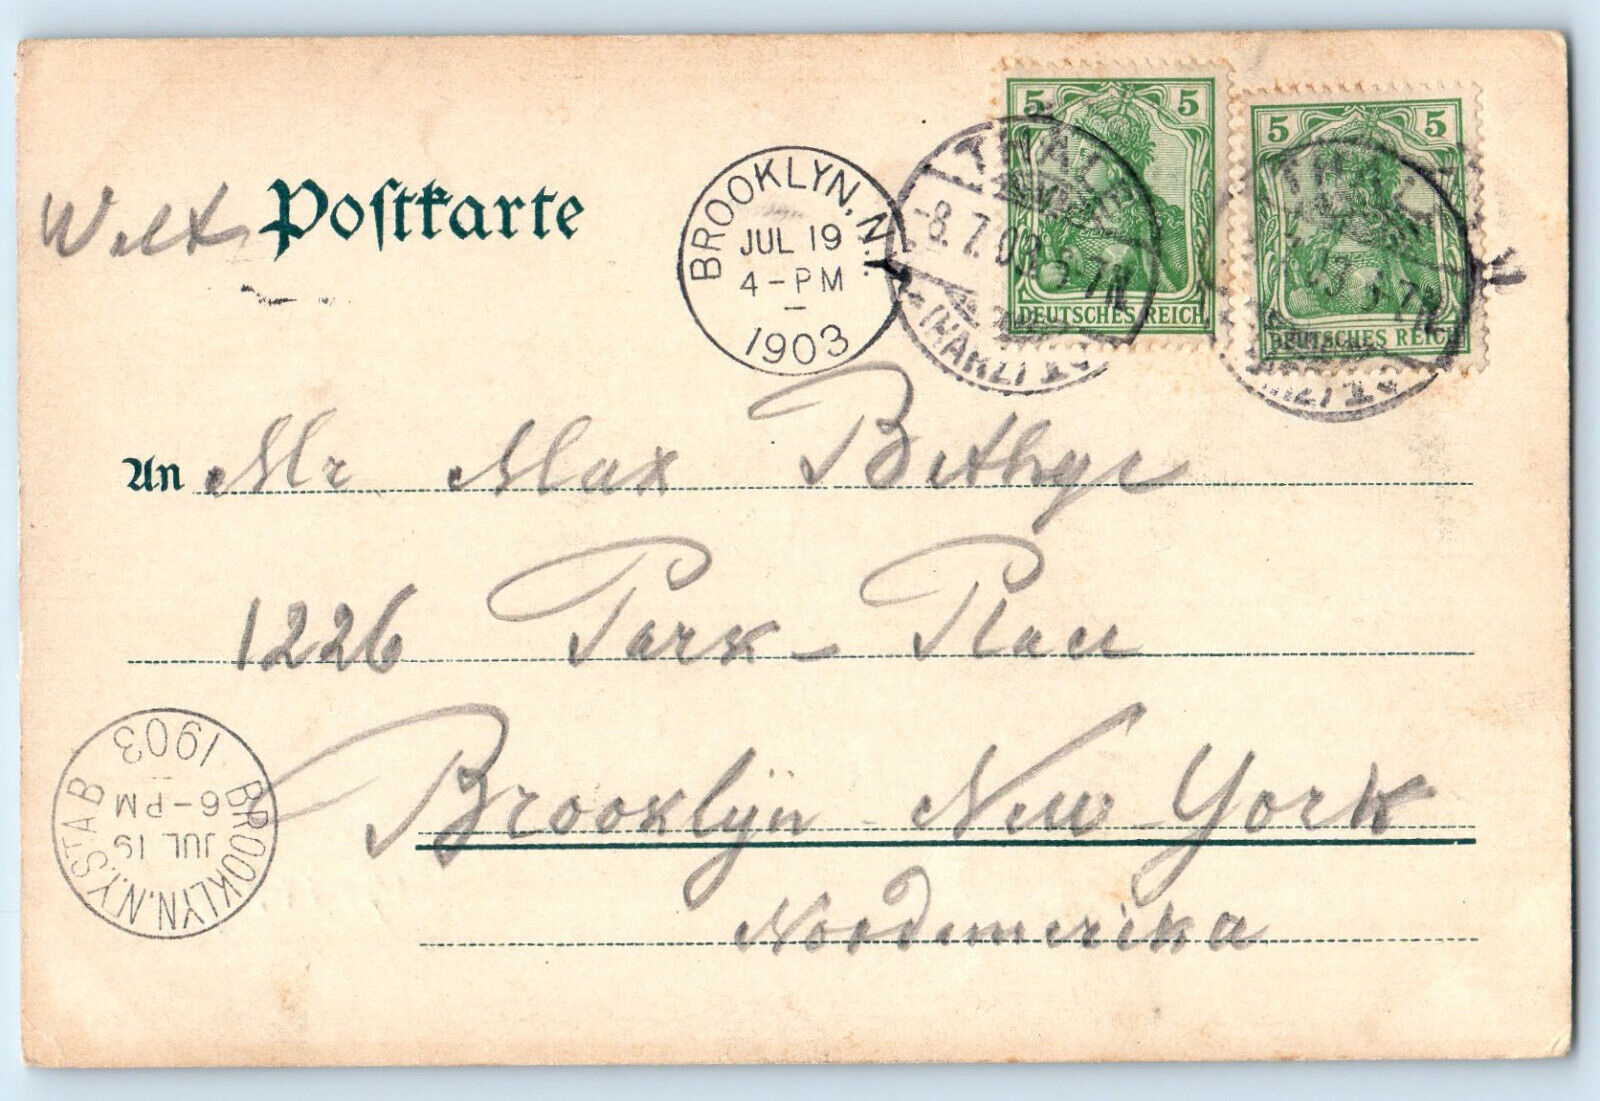 Welt Postkarte
BROOKLYN, N.Y.
JUL 19
4-PM
1903
5 5
DEUTSCHES REICH
5 5
DEUTSCHES REICH
THALE
-8.7.03. 6-7N
(HARZ) 1
THALE
An Mr Max Bethge
1226 Park-Place
Brooklyn New York
Nordamerika
BROOKLYN. N.Y. STA B
JUL 19
6-PM
1903